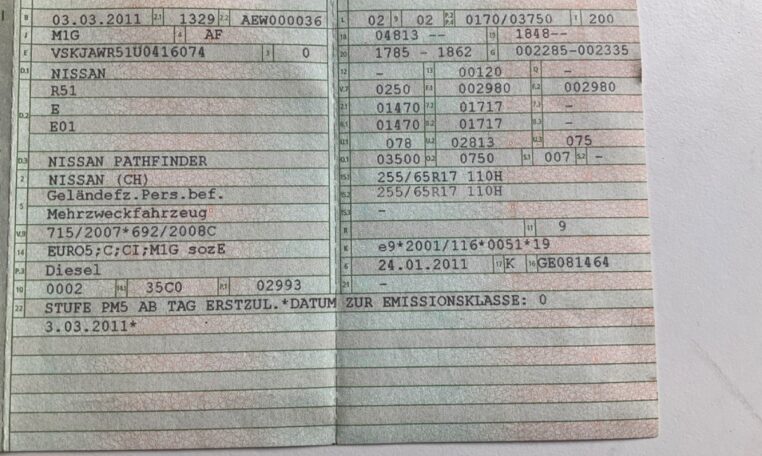 B 03.03.2011 2.1 1329 2.2 AEW000036
J M1G 4 AF
E VSKJAWR51U0416074 3 0
D.1 NISSAN
D.2 R51
E
E01
D.3 NISSAN PATHFINDER
2 NISSAN (CH)
5 Geländefz.Pers.bef.
Mehrzweckfahrzeug
V.9 715/2007*692/2008C
14 EURO5;C;CI;M1G sozE
P.3 Diesel
10 0002 14.1 35C0 P.1 02993
L 02 9 02 P.2 P.4 0170/03750 T 200
18 04813 -- 19 1848--
20 1785 - 1862 G 002285-002335
12 - 13 00120 Q -
V.7 0250 F.1 002980 F.2 002980
7.1 01470 7.2 01717 7.3 -
8.1 01470 8.2 01717 8.3 -
U.1 078 U.2 02813 U.3 075
O.1 03500 O.2 0750 S.1 007 S.2 -
15.1 255/65R17 110H
15.2 255/65R17 110H
15.3 -
R 11 9
K e9*2001/116*0051*19
6 24.01.2011 17 K 16 GE081464
21 -
22 STUFE PM5 AB TAG ERSTZUL.*DATUM ZUR EMISSIONSKLASSE: 0
3.03.2011*